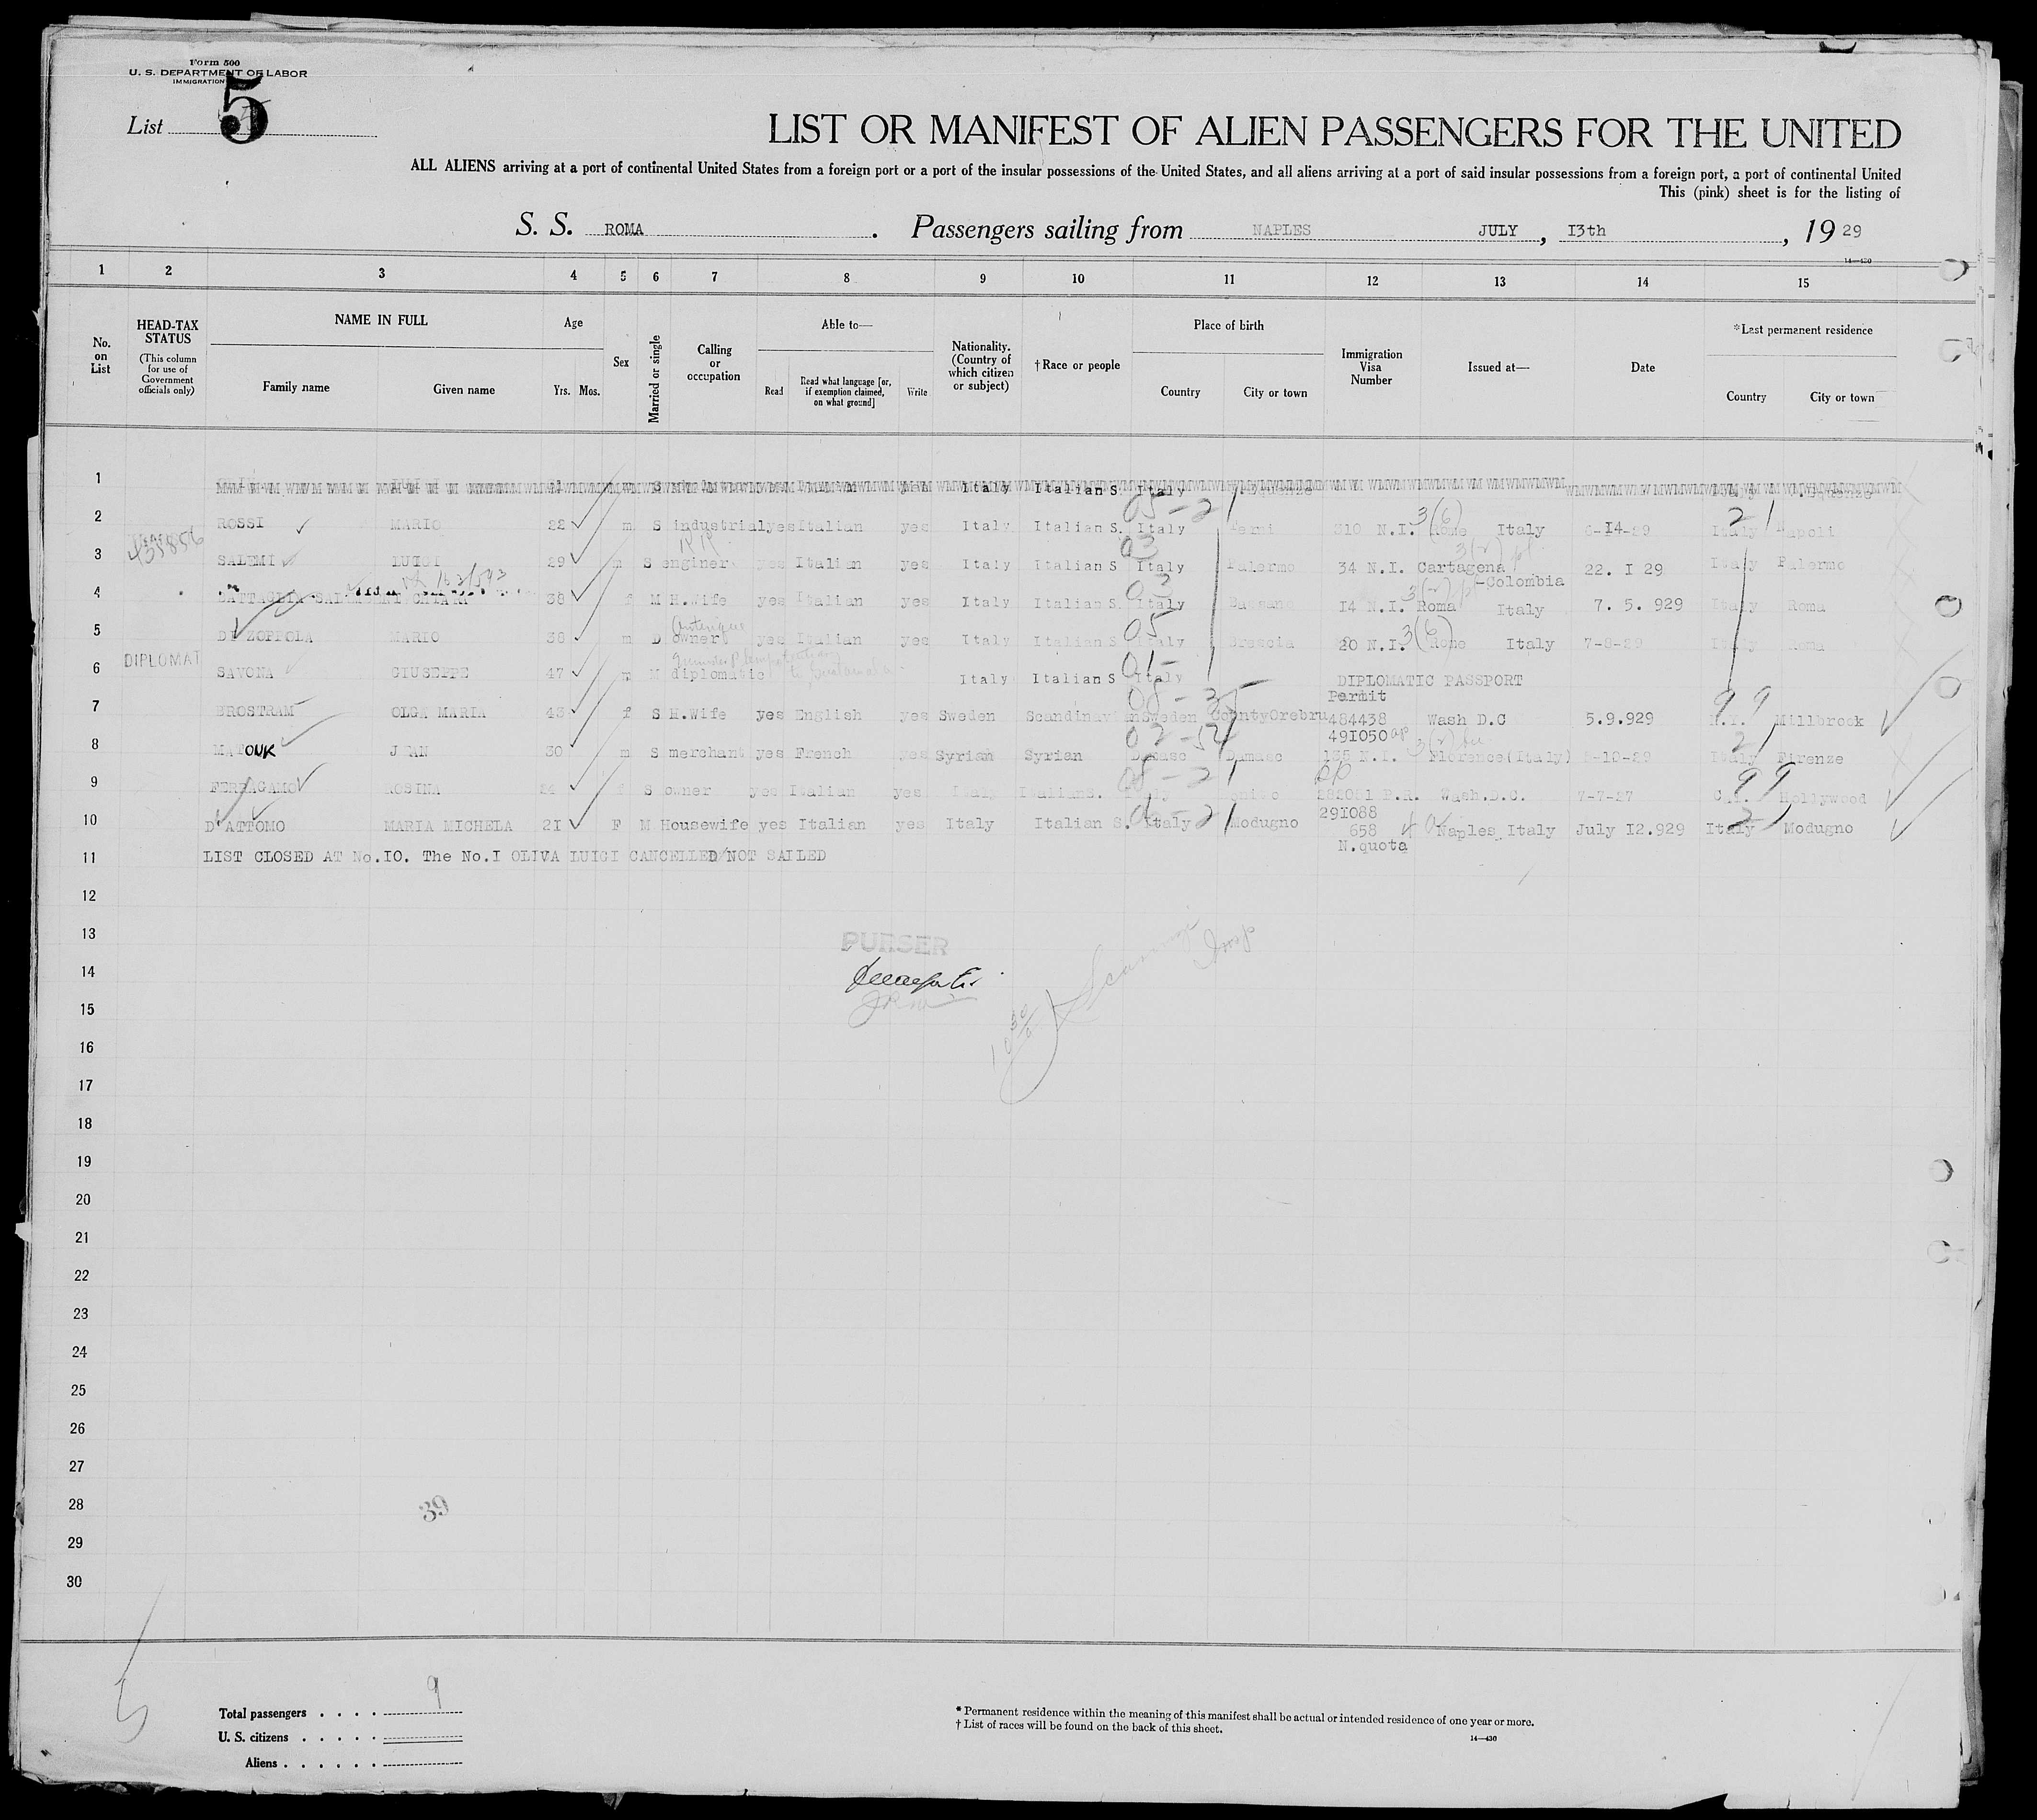 Form 500
U. S. DEPARTMENT OF LABOR
IMMIGRATION
List 5
LIST OR MANIFEST OF ALIEN PASSENGERS FOR THE UNITED
ALL ALIENS arriving at a port of continental United States from a foreign port or a port of the insular possessions of the United States, and all aliens arriving at a port of said insular possessions from a foreign port, a port of continental United
This (pink) sheet is for the listing of
S. S. ROMA. Passengers sailing from NAPLES JULY, I3th, 19 29
14—430
1 2 3 4 5 6 7 8 9 10 11 12 13 14 15
No. on List
HEAD-TAX STATUS (This column for use of Government officials only)
NAME IN FULL
Family name Given name
Age
Yrs. Mos.
Sex
Married or single
Calling or occupation
Able to—
Read
Read what language [or, if exemption claimed, on what ground]
Write
Nationality. (Country of which citizen or subject)
†Race or people
Place of birth
Country City or town
Immigration Visa Number
Issued at—
Date
*Last permanent residence
Country City or town
1 Italy Italian S Italy
05-21
2 ROSSI MARIO 22 m S industrial yes Italian yes Italy Italian S. Italy 310 N.I. 3(6) Rome Italy 6-I4-29 Italy Napoli
435856
03
3 SALEMI LUIGI 29 m S enginer yes Italian yes Italy Italian S Italy Palermo 34 N.I. Cartagena -Colombia 22. I 29 Italy Palermo
03
4 BATTAGLIA CHIARA 38 f M H.Wife yes Italian yes Italy Italian S. Italy Bassano I4 N.I. Roma Italy 7. 5. 929 Italy Roma
05
5 DI ZOPPOLA MARIO 38 m D owner yes Italian yes Italy Italian S Italy Brescia 20 N.I. 3(6) Rome Italy 7-8-29 Italy Roma
01-
DIPLOMAT
6 SAVONA GIUSEPPE 47 m M diplomatic Italy Italian S Italy DIPLOMATIC PASSPORT
08-35
Permit
7 BROSTRAM OLGA MARIA 43 f S H.Wife yes English yes Sweden Scandinavian Sweden County Orebru 484438 Wash D.C 5.9.929 N.Y. Millbrook
49I050
8 MATOUK JEAN 30 m S merchant yes French yes Syrian Syrian Damasc Damasc 135 N.I. Florence(Italy) Italy Firenze
08-21
99
9 FERRAGAMO ROSINA 24 f S owner yes Italian yes Italy Italian S. 282081 P.R. Wash.D.C. 7-7-27 Cal. Hollywood
29I088
10 D'ATTOMO MARIA MICHELA 2I F M Housewife yes Italian yes Italy Italian S. Italy Modugno 658 Naples Italy July I2.929 Italy Modugno
N.quota
11 LIST CLOSED AT No.IO. The No.I OLIVA LUIGI CANCELLED/NOT SAILED
12
13
PURSER
14
15
16
17
18
19
20
21
22
23
24
25
26
27
28
39
29
30
Total passengers . . . . 9
U. S. citizens . . . . .
Aliens . . . . . .
* Permanent residence within the meaning of this manifest shall be actual or intended residence of one year or more.
† List of races will be found on the back of this sheet.
14—430